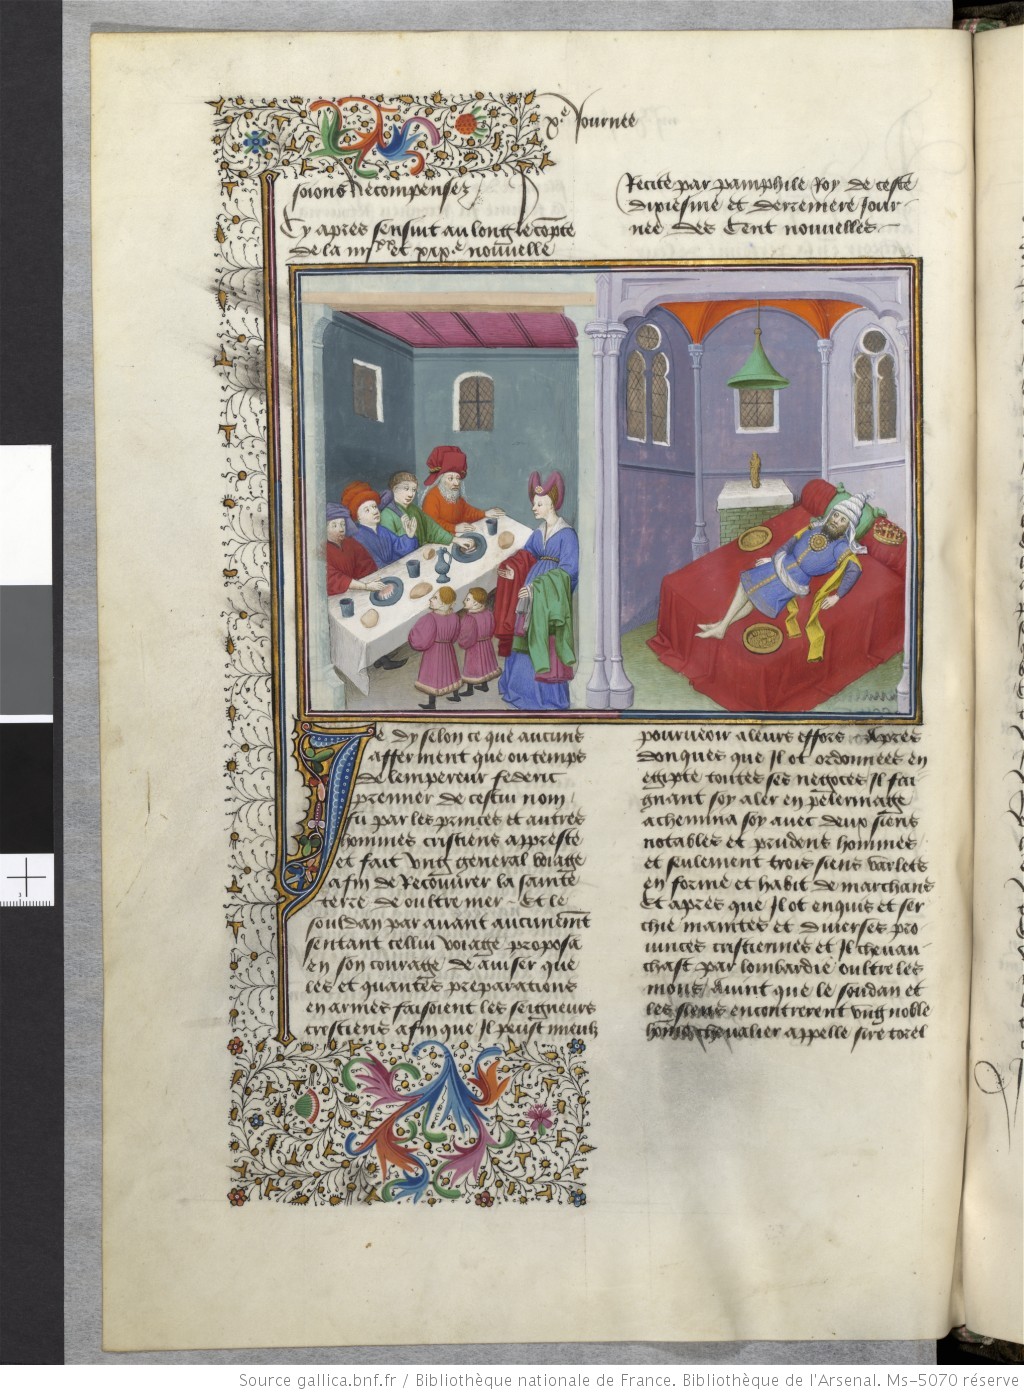 x.e Journee
soions Recompensez
Cy apres sensuit au long le compte
de la iiij xx et xix.e nouvelle
Recite par pamphile Roy de ceste
dixiesme et derreniere Jour-
nee des Cent nouvelles
Je dy selon ce que aucuns
afferment que ou temps
de lempereur federic
premier de cestui nom
fu par les princes et autres
hommes cristiens appreste
et fait ung general voiage
afin de Recouvrer la sainte
terre de oultre mer Et le
souldan par avant aucunement
sentant cellui voiage proposa
en son courage de aviser quel
les et quantes preparations
en armes faisoient les seigneurs
crestiens afin que Il peust mieulx
pourveoir a leurs effors Apres
donques que Il ot ordonnees en
egipte toutes ses negoces Il fai
gnant soy aler en pelerinage
achemina soy avec deux siens
notables et prudens hommes
et seulement trois siens varlets
en forme et habit de marchans
Et apres que Il ot enquis et ser
chie maintes et diverses pro
vinces cristiennes et Il chevau
chast par lombardie oultre les
mons Avint que le soudan et
les siens encontrerent ung noble
homme chevalier appelle sire torel
Source gallica.bnf.fr / Bibliothèque nationale de France. Bibliothèque de l'Arsenal. Ms-5070 réserve